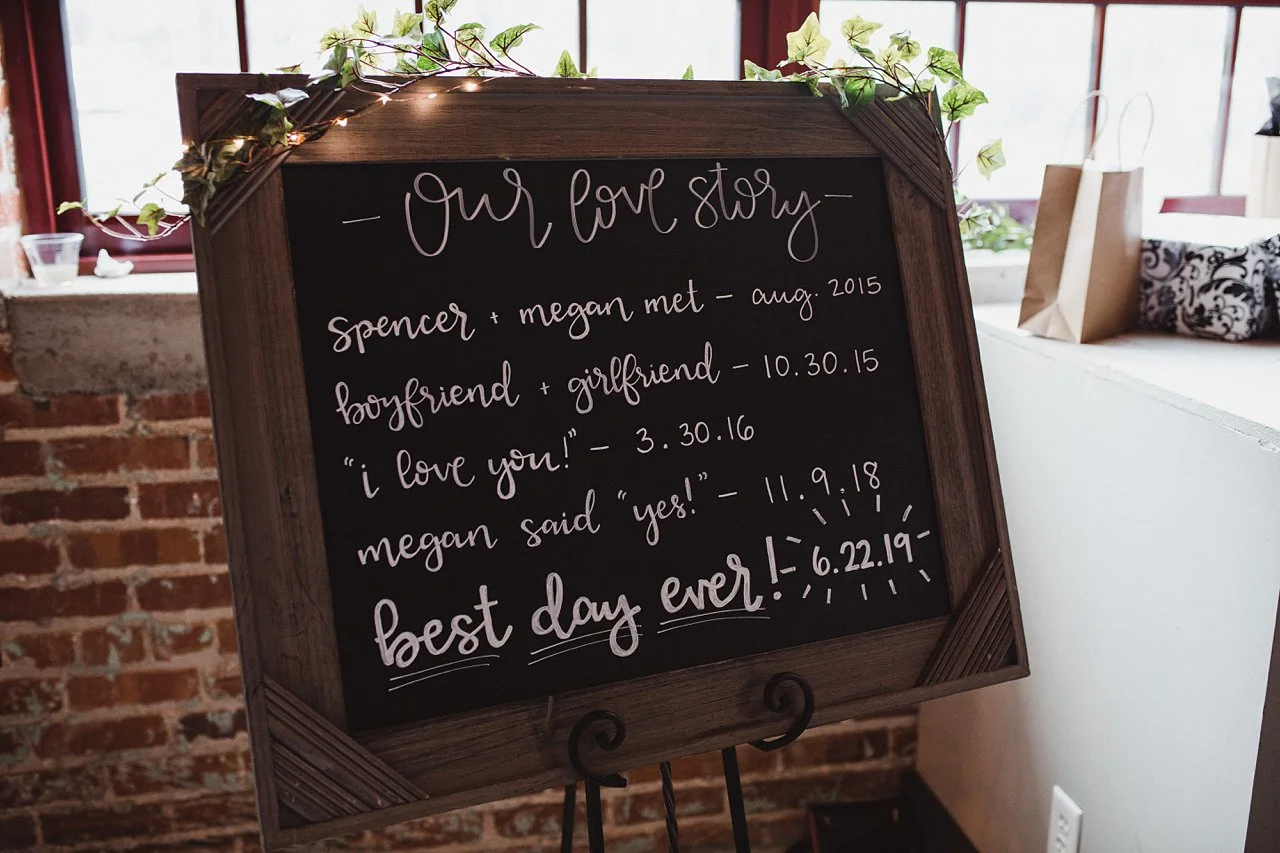 - Our love story -
spencer + megan met - aug. 2015
boyfriend + girlfriend - 10.30.15
"i love you!" - 3.30.16
megan said "yes!" - 11.9.18
best day ever! - 6.22.19